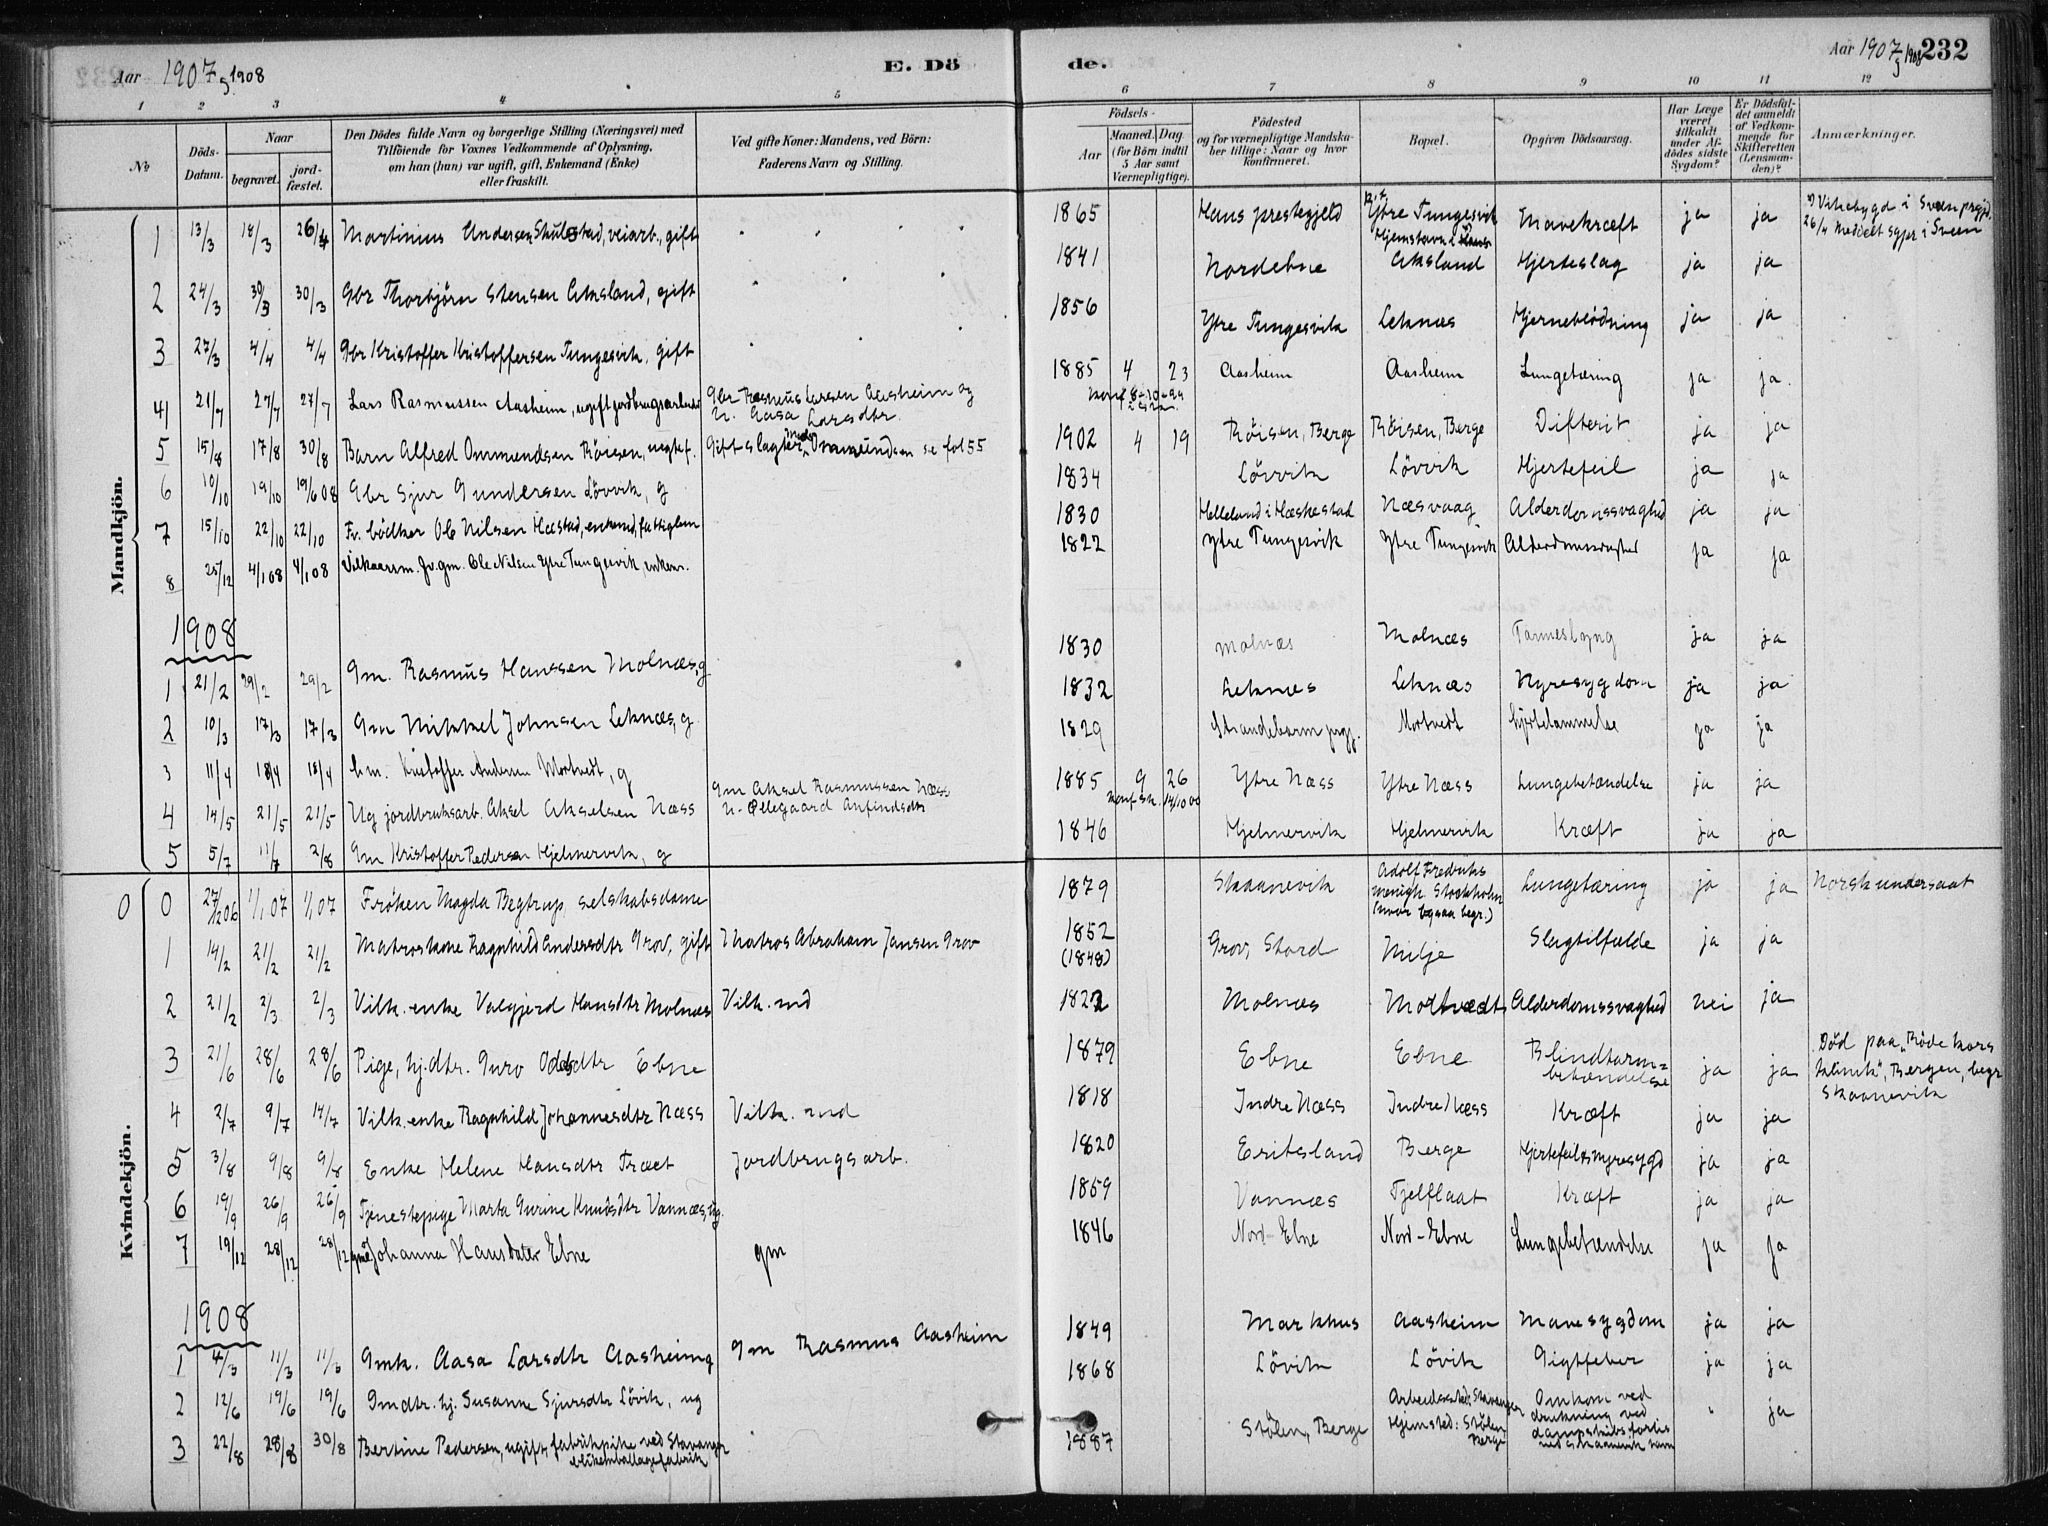 Aar 1907 g 1908 E. Dö de. Aar 1907 g 1908 232
1 2 3 4 5 6 7 8 9 10 11 12
No Döds-Datum. Naar begravet. jordfæstet. Den Dödes fulde Navn og borgerlige Stilling (Næringsvei) med Tilföiende for Voxnes Vedkommende af Oplysning, om han (hun) var ugift, gift, Enkemand (Enke) eller fraskilt. Ved gifte Koner: Mandens, ved Börn: Faderens Navn og Stilling. Födsels- Aar Maaned. Dag. (for Börn indtil 5 Aar samt Værnepligtige). Födested og for værnepligtige Mandskaber tillige: Naar og hvor konfirmeret. Bopæl. Opgiven Dödsaarsag. Har Læge været tilkaldt under Afdödes sidste Sygdom? Er Dödsfaldet anmeldt af Vedkommende for Skifteretten (Lensmanden)? Anmærkninger.
Mandkjön.
1 13/3 18/3 26/4 Martinius Andersen Skulestad, veiarb., gift 1865 Hans prestegjeld Ytre Tungesvik Mavekræft ja ja
2 24/3 30/3 30/3 Gbr Thorbjörn Stensen Aksland, gift 1841 Nordebne Aksland Hjerteslag ja ja
3 27/3 4/4 4/4 Gbr Kristoffer Kristoffersen Tungesvik, gift 1856 Ytre Tungesvik Leknes Hjerneblödning ja ja
4 21/7 27/7 27/7 Lars Rasmussen Aasheim, ugift jordbrugsarbeider Gbr Rasmus Larsen Aasheim og h. Aasa Larsdtr. 1885 4 23 Aasheim Aasheim Lungetæring ja ja
5 15/8 17/8 30/8 Barn Alfred Ommundsen Röisen, uegtef. Gift slagter Ommundsen se fol 55 1902 4 19 Röisen, Berge Röisen, Berge Difterit ja ja
6 10/10 19/10 19/6 08 Gbr Sjur Gundersen Lövvik, g 1834 Lövvik Lövvik Hjertefeil ja ja
7 15/10 22/10 22/10 Fv. bödker Ole Nilsen Hæstad, enkemd, fattiglem 1830 Helleland i Hæskestad Næsvaag Alderdomssvaghed ja ja
8 25/12 4/1 08 4/1 08 Vilkaarsm. fv. gm. Ole Nilsen Ytre Tungesvik, enkem. 1822 Ytre Tungesvik Ytre Tungesvik Alderdomssvaghed ja ja
1908
1 21/2 29/2 29/2 Gm. Rasmus Hanssen Molnæs, g 1830 Molnæs Molnæs Tarmeslyng ja ja
2 10/3 17/3 17/3 Gm Mikkel Johnsen Leknæs, g. 1832 Leknes Leknæs Nyresygdom ja ja
3 11/4 18/4 18/4 Gm. Kristoffer Andersen Mortvedt, g 1829 Strandebarm prgj. Mortvedt hjertelammelse ja ja
4 14/5 21/5 21/5 Ug jordbruksarb. Aksel Akselsen Næss Gm Aksel Rasmussen Næss h. Ollegaard Anfindsdtr 1885 9 26 Ytre Næss Ytre Næss Lungebetændelse ja ja
5 5/7 11/7 2/8 Gm Kristoffer Pedersen Hjelmervik, g 1846 Hjelmervik Hjelmervik Kræft ja ja
Kvindekjön.
0 0 27/12 06 1/1 07 1/1 07 Fröken Magda Begtrup, selskabsdame 1879 Skaanevik Adolf Fredriks menigh. Stockholm (hvor ogsaa begr.) Lungetæring ja ja Norsk undersaat
1 14/2 21/2 21/2 Matroskone Ragnhild Andersdtr Grov, gift Matros Abraham Jansen Grov 1852 (1848) Grov, Stord Milje Slagtilfælde ja ja
2 21/2 2/3 2/3 Vilk. enke Valgjerd Hansdtr Molnæs Vilk. md 1822 Molnæs Mortvedt Alderdomssvaghed nei ja
3 21/6 28/6 28/6 Pige, hj. dtr. Guro Oddsdtr Ebne 1879 Ebne Ebne Blindtarmbetændelse ja ja Död paa "Röde Kors klinik", Bergen, begr Skaanevik
4 2/7 9/7 14/7 Vilk. enke Ragnhild Johannesdtr Næss Vilk. md 1818 Indre Næss Indre Næss Kræft ja ja
5 3/8 9/8 9/8 Enke Helene Hansdtr Træet Jordbrugsarb. 1820 Eritsland Berge Hjertefeil & nyresygd ja ja
6 19/9 26/9 26/9 Tjenestepige Marta Gurine Knutsdtr Vannæs, ug. 1859 Vannæs Tjelflaat Kræft ja ja
7 19/12 28/12 28/12 gmk Johanna Hansdater Ebne gm 1846 Nord-Ebne Nord-Ebne Lungebetændelse ja ja
1908
1 4/3 11/3 11/3 Gmk. Aasa Larsdtr Aasheim g gm Rasmus Aasheim 1849 Markhus Aasheim Mavesygdom ja ja
2 12/6 19/6 19/6 Gmdtr. hj. Susanne Sjursdtr Lövik, ug 1868 Lövik Lövik Gigtfeber ja ja
3 22/8 28/8 30/8 Bertine Pedersen, ugift, fabrikpike ved Stavanger blikemballagefabrik 1887 Stölen, Berge Arbeidssted: Stavanger Hjemsted: Stölen Berge Omkom ved drukning ved dampskibsforlis ja